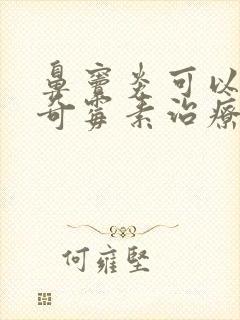 鼻竇炎可以
奇霉素治療
何雍堅